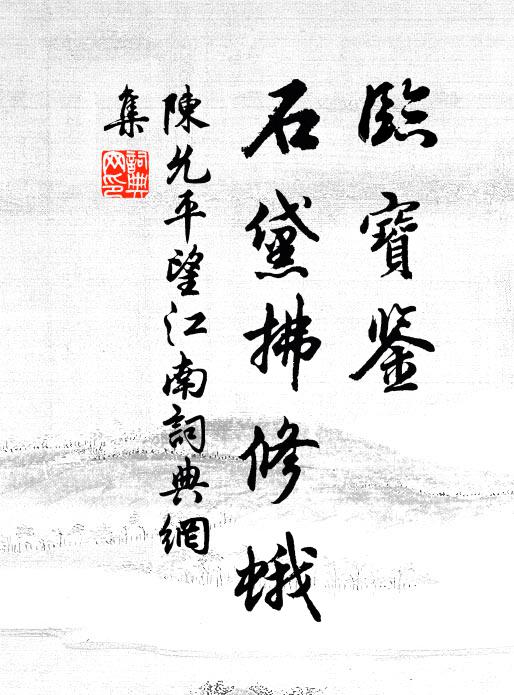 臨寶鉴
石黛拂修蛾
陳允平望江南詞典網
集
詞典网印